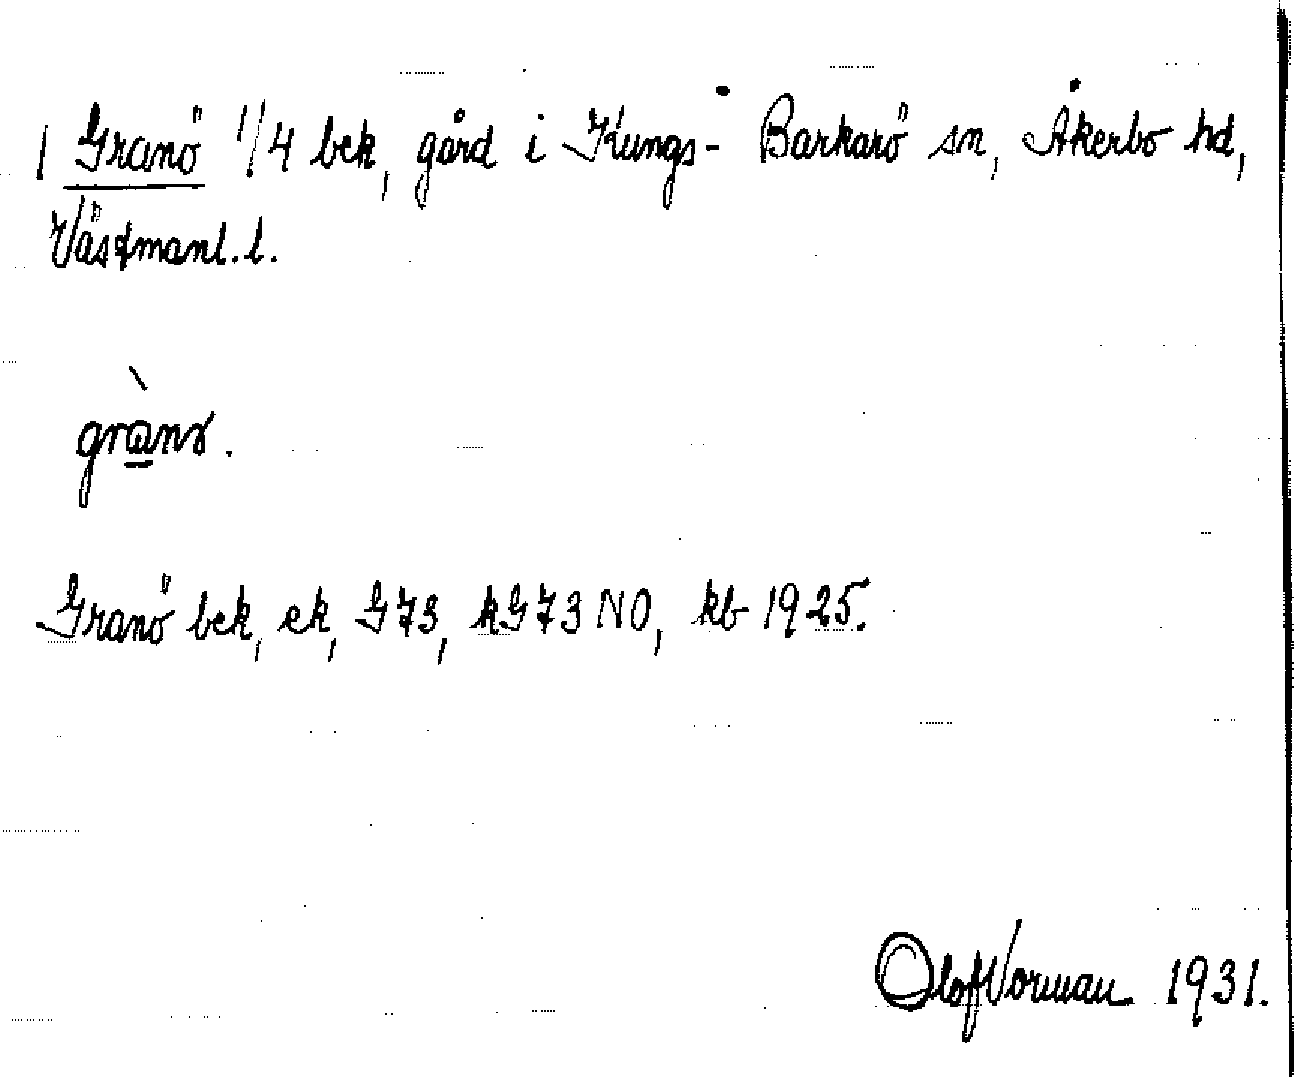 1 Granö 1/4 bek, gård i Kungs-Barkarö sn, Åkerbo hd,
Västmanl. l.
Granö bek, ek, G73, kG73NO, kb 1925.
Olof Norman 1931.